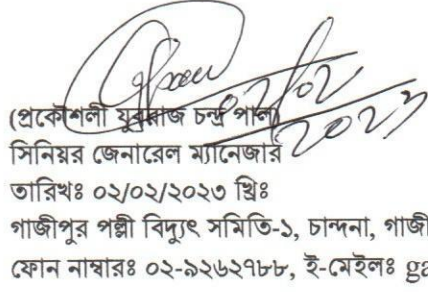 02/02
2023
(প্রকৌশলী যুবরাজ চন্দ্র পাল)
সিনিয়র জেনারেল ম্যানেজার
তারিখঃ ০২/০২/২০২৩ খ্রিঃ
গাজীপুর পল্লী বিদ্যুৎ সমিতি-১, চান্দনা, গাজী
ফোন নাম্বারঃ ০২-৯২৬২৭৮৮, ই-মেইলঃ ga